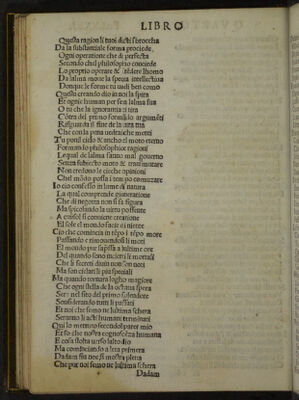 LIBRO
Questa ragion li tuoi dicti sbroccha
Da la substantiale forma procede
Ogni operatione che di perfecta
Secondo chul philosopho concede
Lo proprio operare & itēdere lhomo
Da lalma move la specia intellectiva
Donque le forme tu vedi ben como
Questa creando dio in noi la spira
Et ogni human per sea lalma sua
O tu che la ignorantia ti tira
Cōtra del primo formido argumēti
Risguarda il fine de la tua
Che con la pena vedrai che menti
Tu poni cielo & ancho el moto eterno
Formando philosophice ragioni
Le qual de lalma fanno mal governo
Senza subiecto moto & transmutare
Non credono le cieche opinioni
Chel mōdo possa i tempo comenzare
Io cio confesso in lume di natura
La qual comprende gîneratione
Che di negotta non si fa figura
Ma spicolando la virtu possente
A causol si conviene creatione
El sole el mondo face el niente
Cio che comincia in tēpo i tēpo more
Passando e rimovendosi li moti
El mondo pur sapissa a lultime ore
Del quando sono incerti li mortali
Che li secreti divin non son noti
Ma son celati li piu speciali
Ma quando tornara logho magiore
Che ogni stella de la octava spera
Sera nel sito del primo splendore
Considerando tutti li passati
Et noi che semo ne lultima schera
Seranno li acti humani terminati
Qui lo mettino secondol parer mio
Et so che nostra cognoscēza humana
E cosa stolta verso lalto dio
Ma comēciando a lera primera
Dadam fin noe si mostra plena
Che pur noi semo ne lultima schera
Dadam